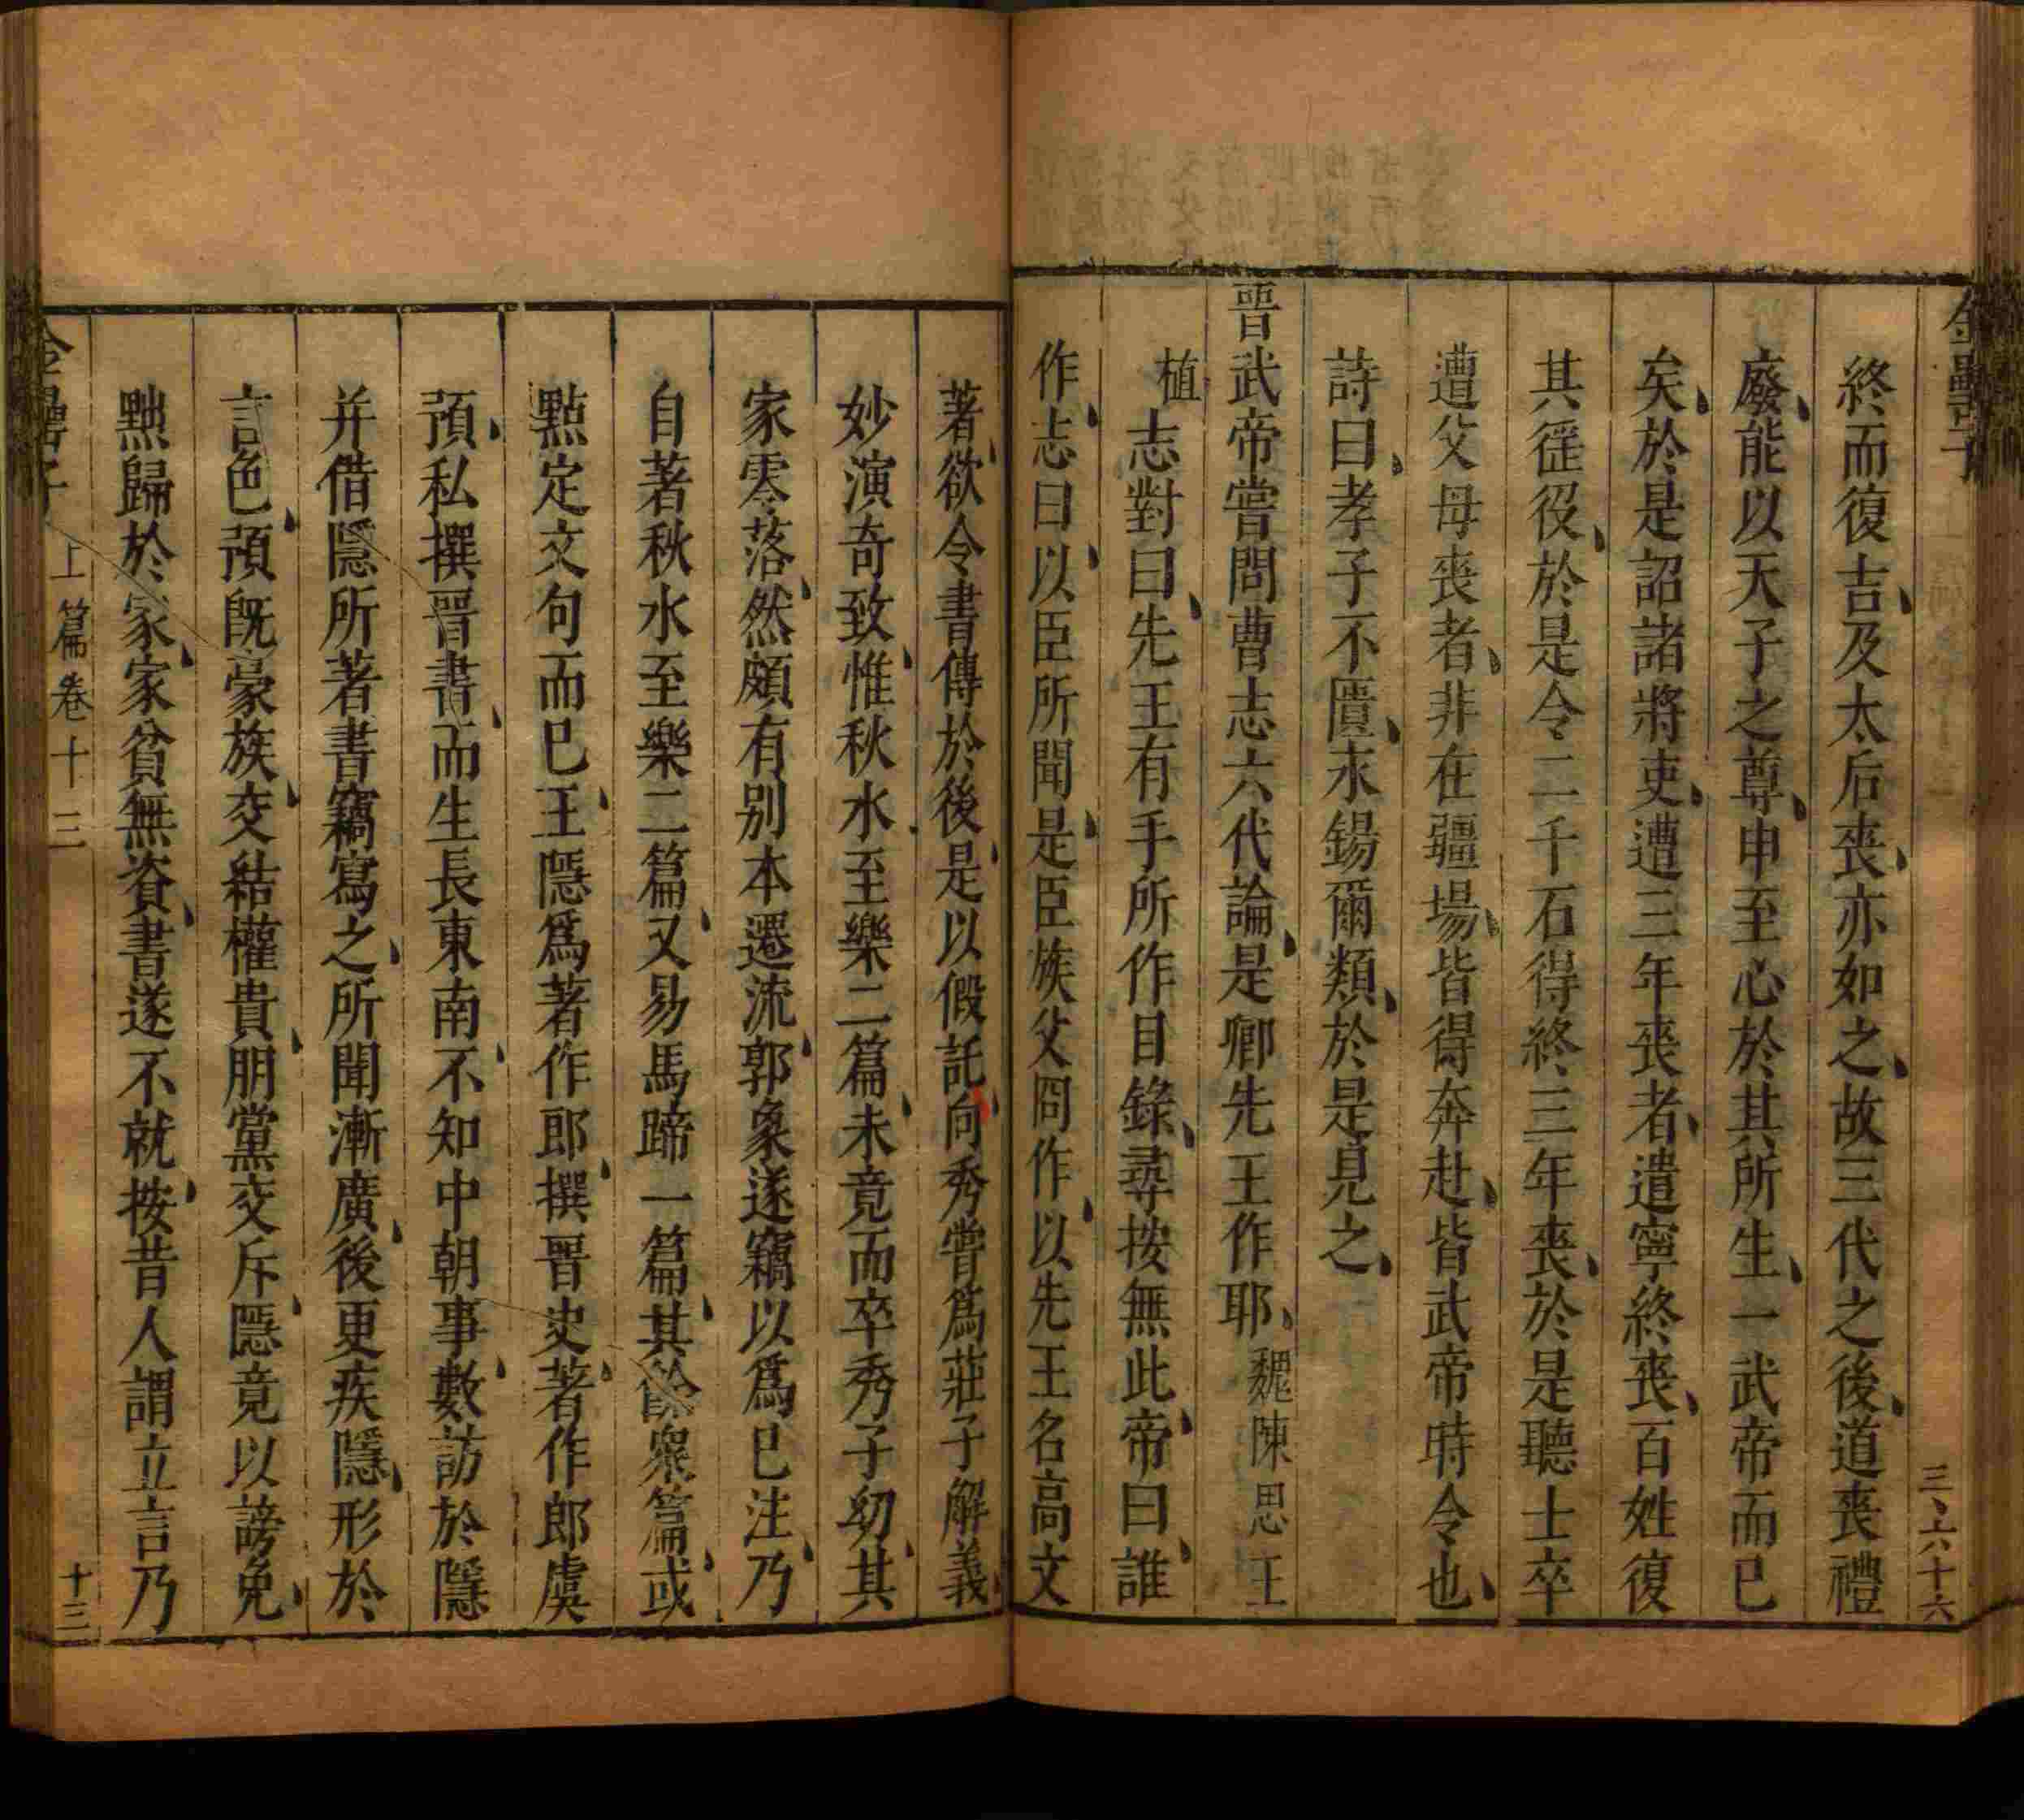 終而復吉及太后喪亦如之故三代之後道喪禮
廢能以天子之尊申至心於其所生一武帝而已
矣於是詔諸將吏遭三年喪者遣寧終喪百姓復
其徭役於是令二千石得終三年喪於是聽士卒
遭父母喪者非在疆場皆得奔赴皆武帝時令也
詩曰孝子不匱永錫爾類於是見之
晋武帝嘗問曹志六代論是卿先王作耶魏陳思王
植志對曰先王有手所作目錄尋按無此帝曰誰
作志曰以臣所聞是臣族父冏作以先王名高文
著欲令書傳於後是以假託向秀嘗爲莊子解義
妙演奇致惟秋水至樂二篇未竟而卒秀子幼其
家零落然頗有别本遷流郭象遂竊以爲已注乃
自著秋水至樂二篇又易馬蹄一篇其餘衆篇或
點定文句而已王隱爲著作郎撰晋史著作郎虞
預私撰晋書而生長東南不知中朝事數訪於隱
并借隱所著書竊寫之所聞漸廣後更疾隱形於
言色預旣豪族交結權貴朋黨交斥隱竟以謗免
黜歸於家家貧無資書遂不就按昔人謂立言乃
上篇卷十三
十三